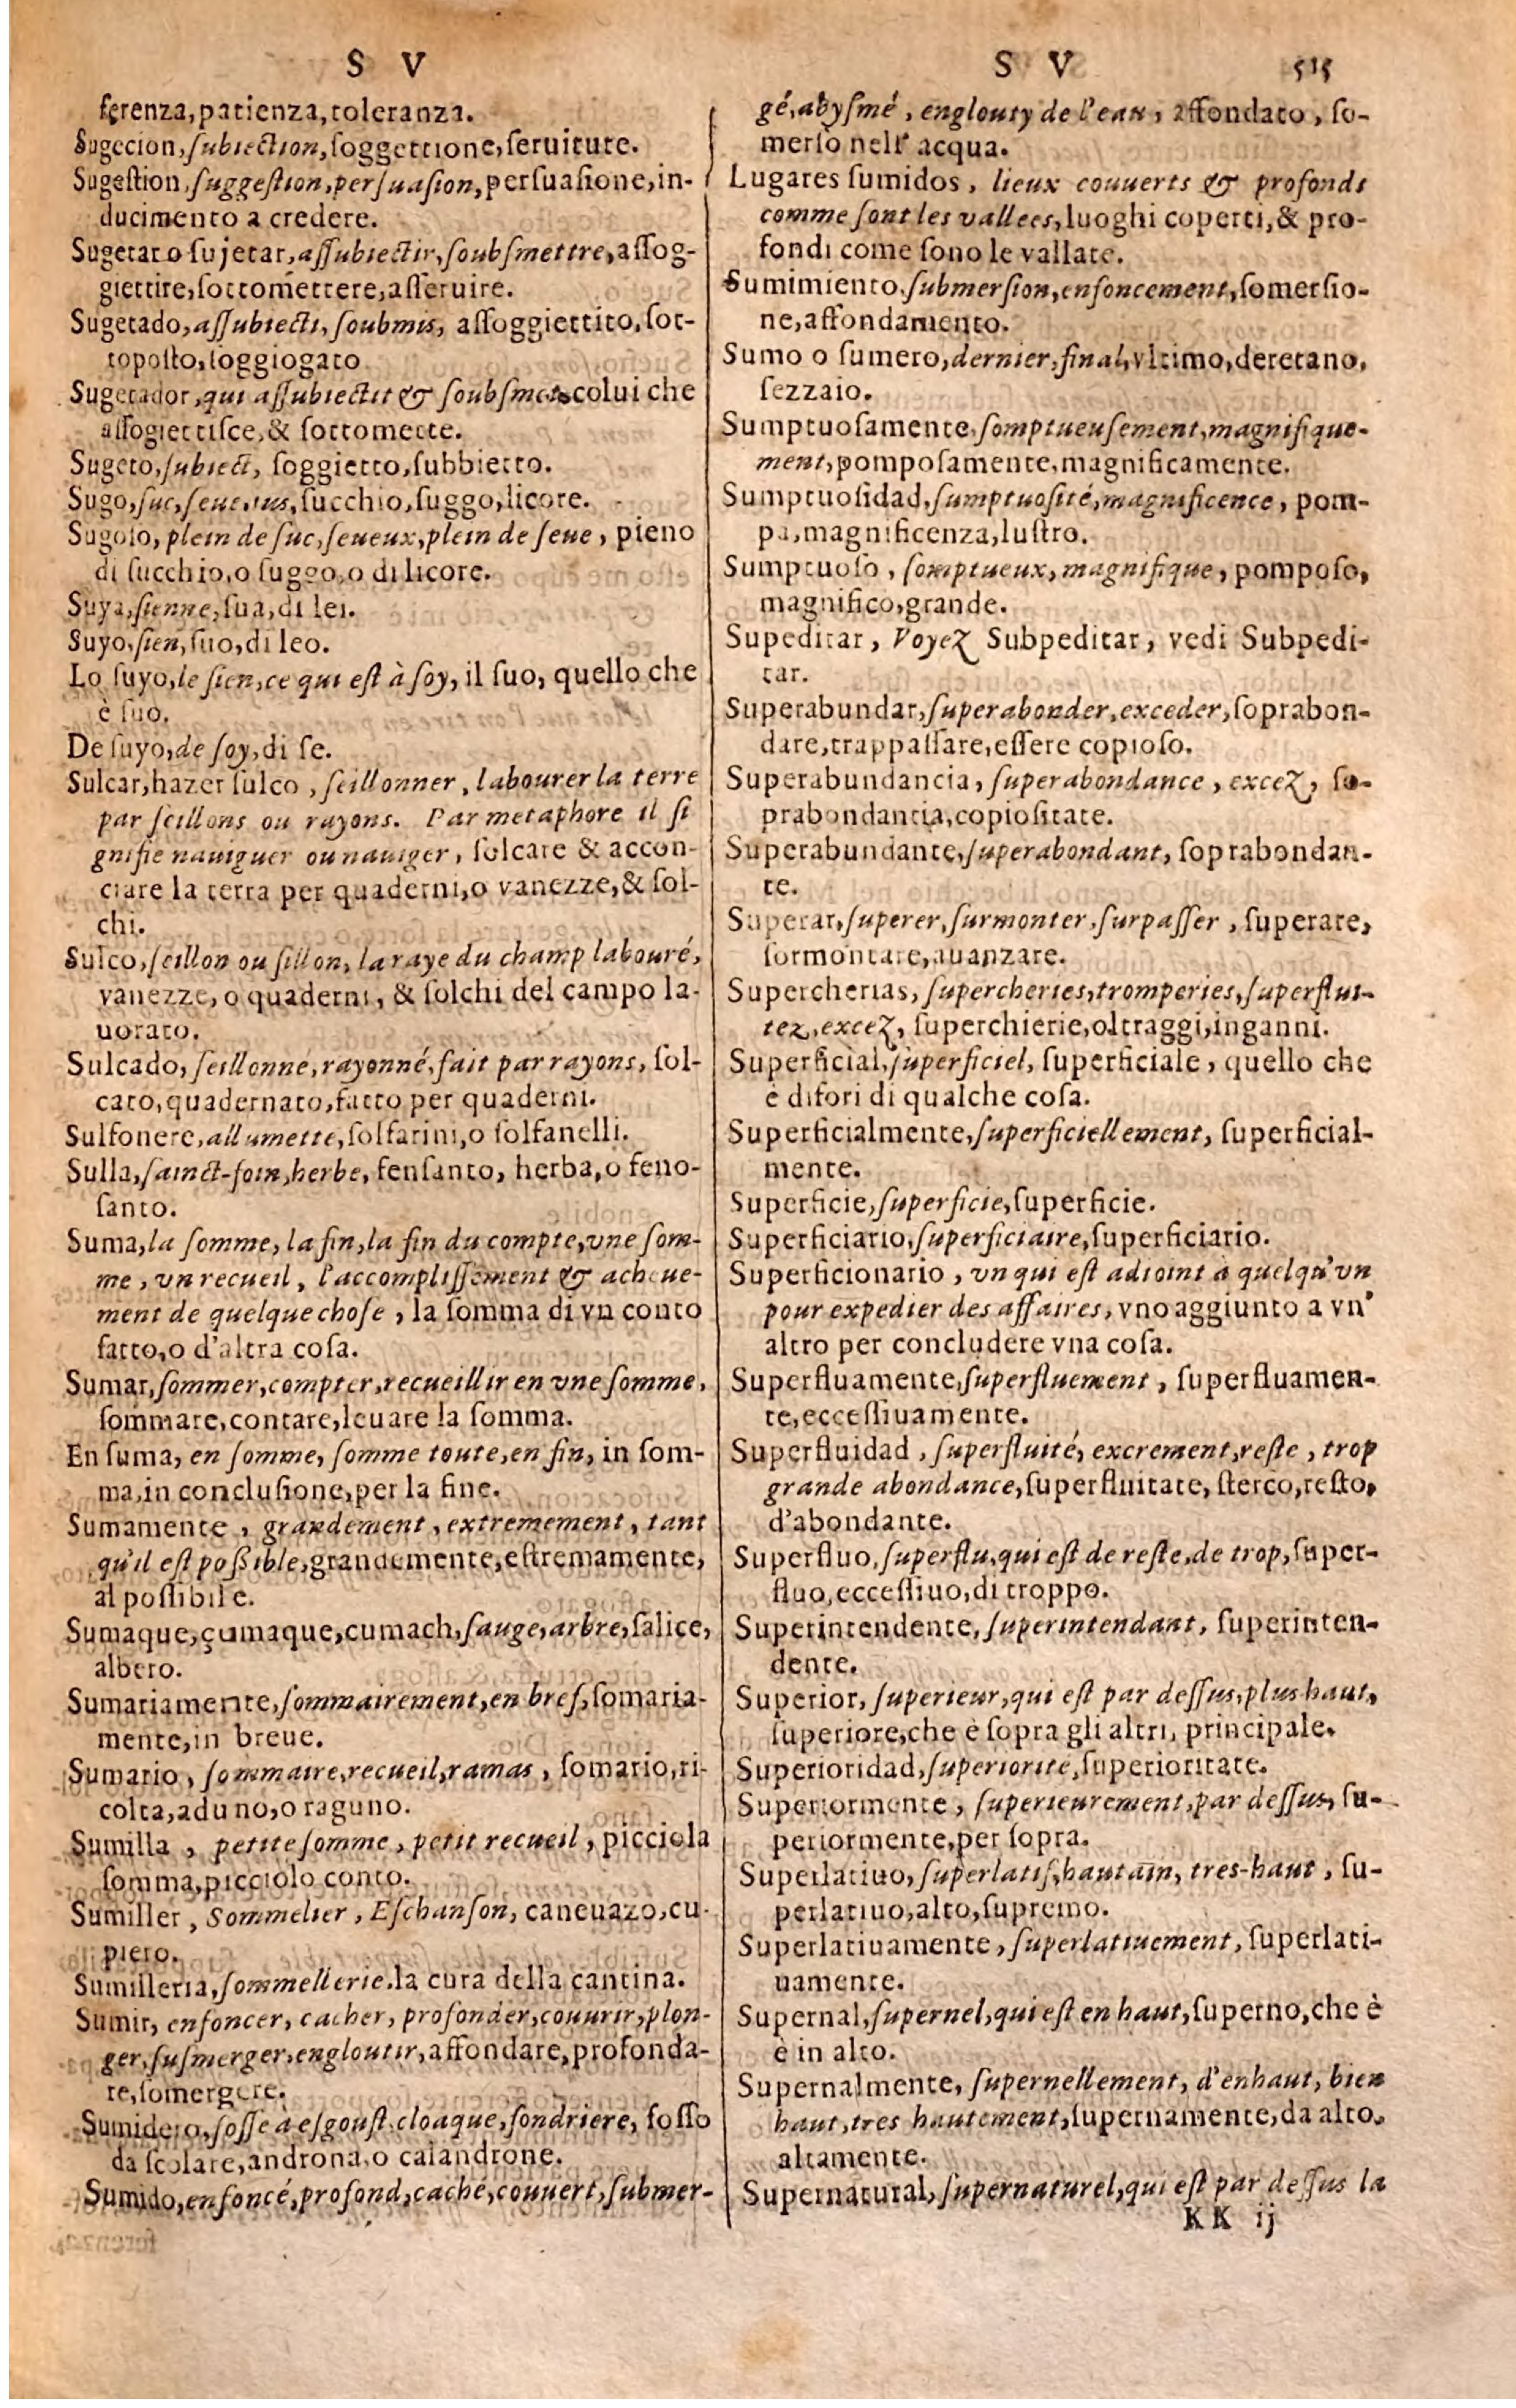 S V
ferenza,patienza,toleranza.
Sugecion,ſubiection,ſoggettione,ſeruitute.
Sugestion,ſuggeſtion,perſuaſion,perſuaſione,in-
ducimento a credere.
Sugetar o ſujetar,aſſubiectir,ſoubſmettre,aſſog-
giettire,ſottomettere,aſſeruire.
Sugetado,aſſubiecti,ſoubmis, aſſoggiettito,ſot-
topoſto,ſoggiogato
Sugetador,qui aſſubiectit & ſoubſmet,colui che
aſſogiettiſce,& ſottomette.
Sugeto,ſubiect, ſoggietto,ſubbietto.
Sugo,ſuc,ſeue,ius,ſucchio,ſuggo,licore.
Sugoſo,plein de ſuc,ſeueux,plein de ſeue, pieno
di ſucchio,o ſuggo,o di licore.
Suya,ſienne,ſua,di lei.
Suyo,ſien,ſuo,di leo.
Lo ſuyo,le ſien,ce qui eſt à ſoy, il ſuo, quello che
è ſuo.
De ſuyo,de ſoy,di ſe.
Sulcar,hazer ſulco , ſeillonner, labourer la terre
par ſeillons ou rayons. Par metaphore il ſi
gnifie nauiguer ou nauiger, ſolcare & accon-
ciare la terra per quaderni,o vanezze,& ſol-
chi.
Sulco,ſeillon ou ſillon, la raye du champ labouré,
vanezze,o quaderni, & ſolchi del campo la-
uorato.
Sulcado,ſeillonné,rayonné,fait par rayons, ſol-
cato,quadernato,fatto per quaderni.
Sulfonere,allumette,ſolfarini,o ſolfanelli.
Sulla,ſainct-foin,herbe, fenſanto, herba,o feno-
ſanto.
Suma,la ſomme, la fin,la fin du compte,vne ſom-
me, vn recueil, l'accompliſſement & acheue-
ment de quelque choſe, la ſomma di vn conto
fatto,o d'altra coſa.
Sumar,ſommer,compter,recueillir en vne ſomme,
ſommare,contare,leuare la ſomma.
En ſuma, en ſomme, ſomme toute,en fin, in ſom-
ma,in concluſione,per la fine.
Sumamente, grandement, extremement, tant
qu'il eſt poßible,grandemente,eſtremamente,
al poſſibile.
Sumaque,çumaque,cumach,ſauge,arbre,ſalice,
albero.
Sumariamente,ſommairement,en bref,ſomaria-
mente,in breue.
Sumario, ſommaire,recueil,ramas, ſomario,ri-
colta,aduno,o raguno.
Sumilla, petite ſomme, petit recueil, picciola
ſomma,picciolo conto.
Sumiller, Sommelier, Eſchanſon, caneuazo,cu-
piero.
Sumilleria,ſommellerie,la cura della cantina.
Sumir, enfoncer, cacher, profonder,couurir,plon-
ger,ſuſmerger,engloutir,affondare,profonda-
re,ſomergere.
Sumidero,foſſe à eſgouſt,cloaque,fondriere, foſſo
da ſcolare,androna,o calandrone.
Sumido,enfoncé,profond,caché,couuert,ſubmer-
S V 515
gé,abyſmé, englouty de l'eau, affondato, ſo-
merſo nell' acqua.
Lugares ſumidos, lieux couuerts & profonds
comme ſont les vallees,luoghi coperti,& pro-
fondi come ſono le vallate.
Sumimiento,ſubmerſion,enfoncement,ſomerſio-
ne,affondamento.
Sumo o ſumero,dernier,final,vltimo,deretano,
ſezzaio.
Sumptuoſamente,ſomptueuſement,magnifique-
ment,pompoſamente,magnificamente.
Sumptuoſidad,ſumptuoſité,magnificence, pom-
pa,magnificenza,luſtro.
Sumptuoſo, ſomptueux,magnifique, pompoſo,
magnifico,grande.
Supeditar, Voyez Subpeditar, vedi Subpedi-
tar.
Superabundar,ſuperabonder,exceder,ſoprabon-
dare,trappaſſare,eſſere copioſo.
Superabundancia, ſuperabondance, excez, ſo-
prabondancia,copioſitate.
Superabundante,ſuperabondant, ſoprabondan-
te.
Superar,ſuperer,ſurmonter,ſurpaſſer, ſuperare,
ſormontare,auanzare.
Supercherias, ſupercheries,tromperies,ſuperflui-
tez,excez, ſuperchierie,oltraggi,inganni.
Superficial,ſuperficiel, ſuperficiale, quello che
è difori di qualche coſa.
Superficialmente,ſuperficiellement, ſuperficial-
mente.
Superficie,ſuperficie,ſuperficie.
Superficiario,ſuperficiaire,ſuperficiario.
Superficionario, vn qui eſt adioint à quelqu'vn
pour expedier des affaires, vno aggiunto a vn'
altro per concludere vna coſa.
Superfluamente,ſuperfluement, ſuperfluamen-
te,ecceſſiuamente.
Superfluidad, ſuperfluité, excrement,reſte, trop
grande abondance,ſuperfluitate, ſterco,reſto,
d'abondante.
Superfluo,ſuperflu,qui eſt de reſte,de trop,ſuper-
fluo,ecceſſiuo,di troppo.
Superintendente, ſuperintendant, ſuperinten-
dente.
Superior, ſuperieur,qui eſt par deſſus,plus haut,
ſuperiore,che è ſopra gli altri, principale.
Superioridad,ſuperiorité,ſuperioritate.
Superiormente, ſuperieurement,par deſſus, ſu-
periormente,per ſopra.
Superlatiuo,ſuperlatif,hautain, tres-haut, ſu-
perlatiuo,alto,ſupremo.
Superlatiuamente, ſuperlatiuement, ſuperlati-
uamente.
Supernal,ſupernel,qui eſt en haut,ſuperno,che è
è in alto.
Supernalmente, ſupernellement, d'enhaut, bien
haut,tres hautement,ſupernamente,da alto,
altamente.
Supernatural,ſupernaturel,qui eſt par deſſus la
KK ij